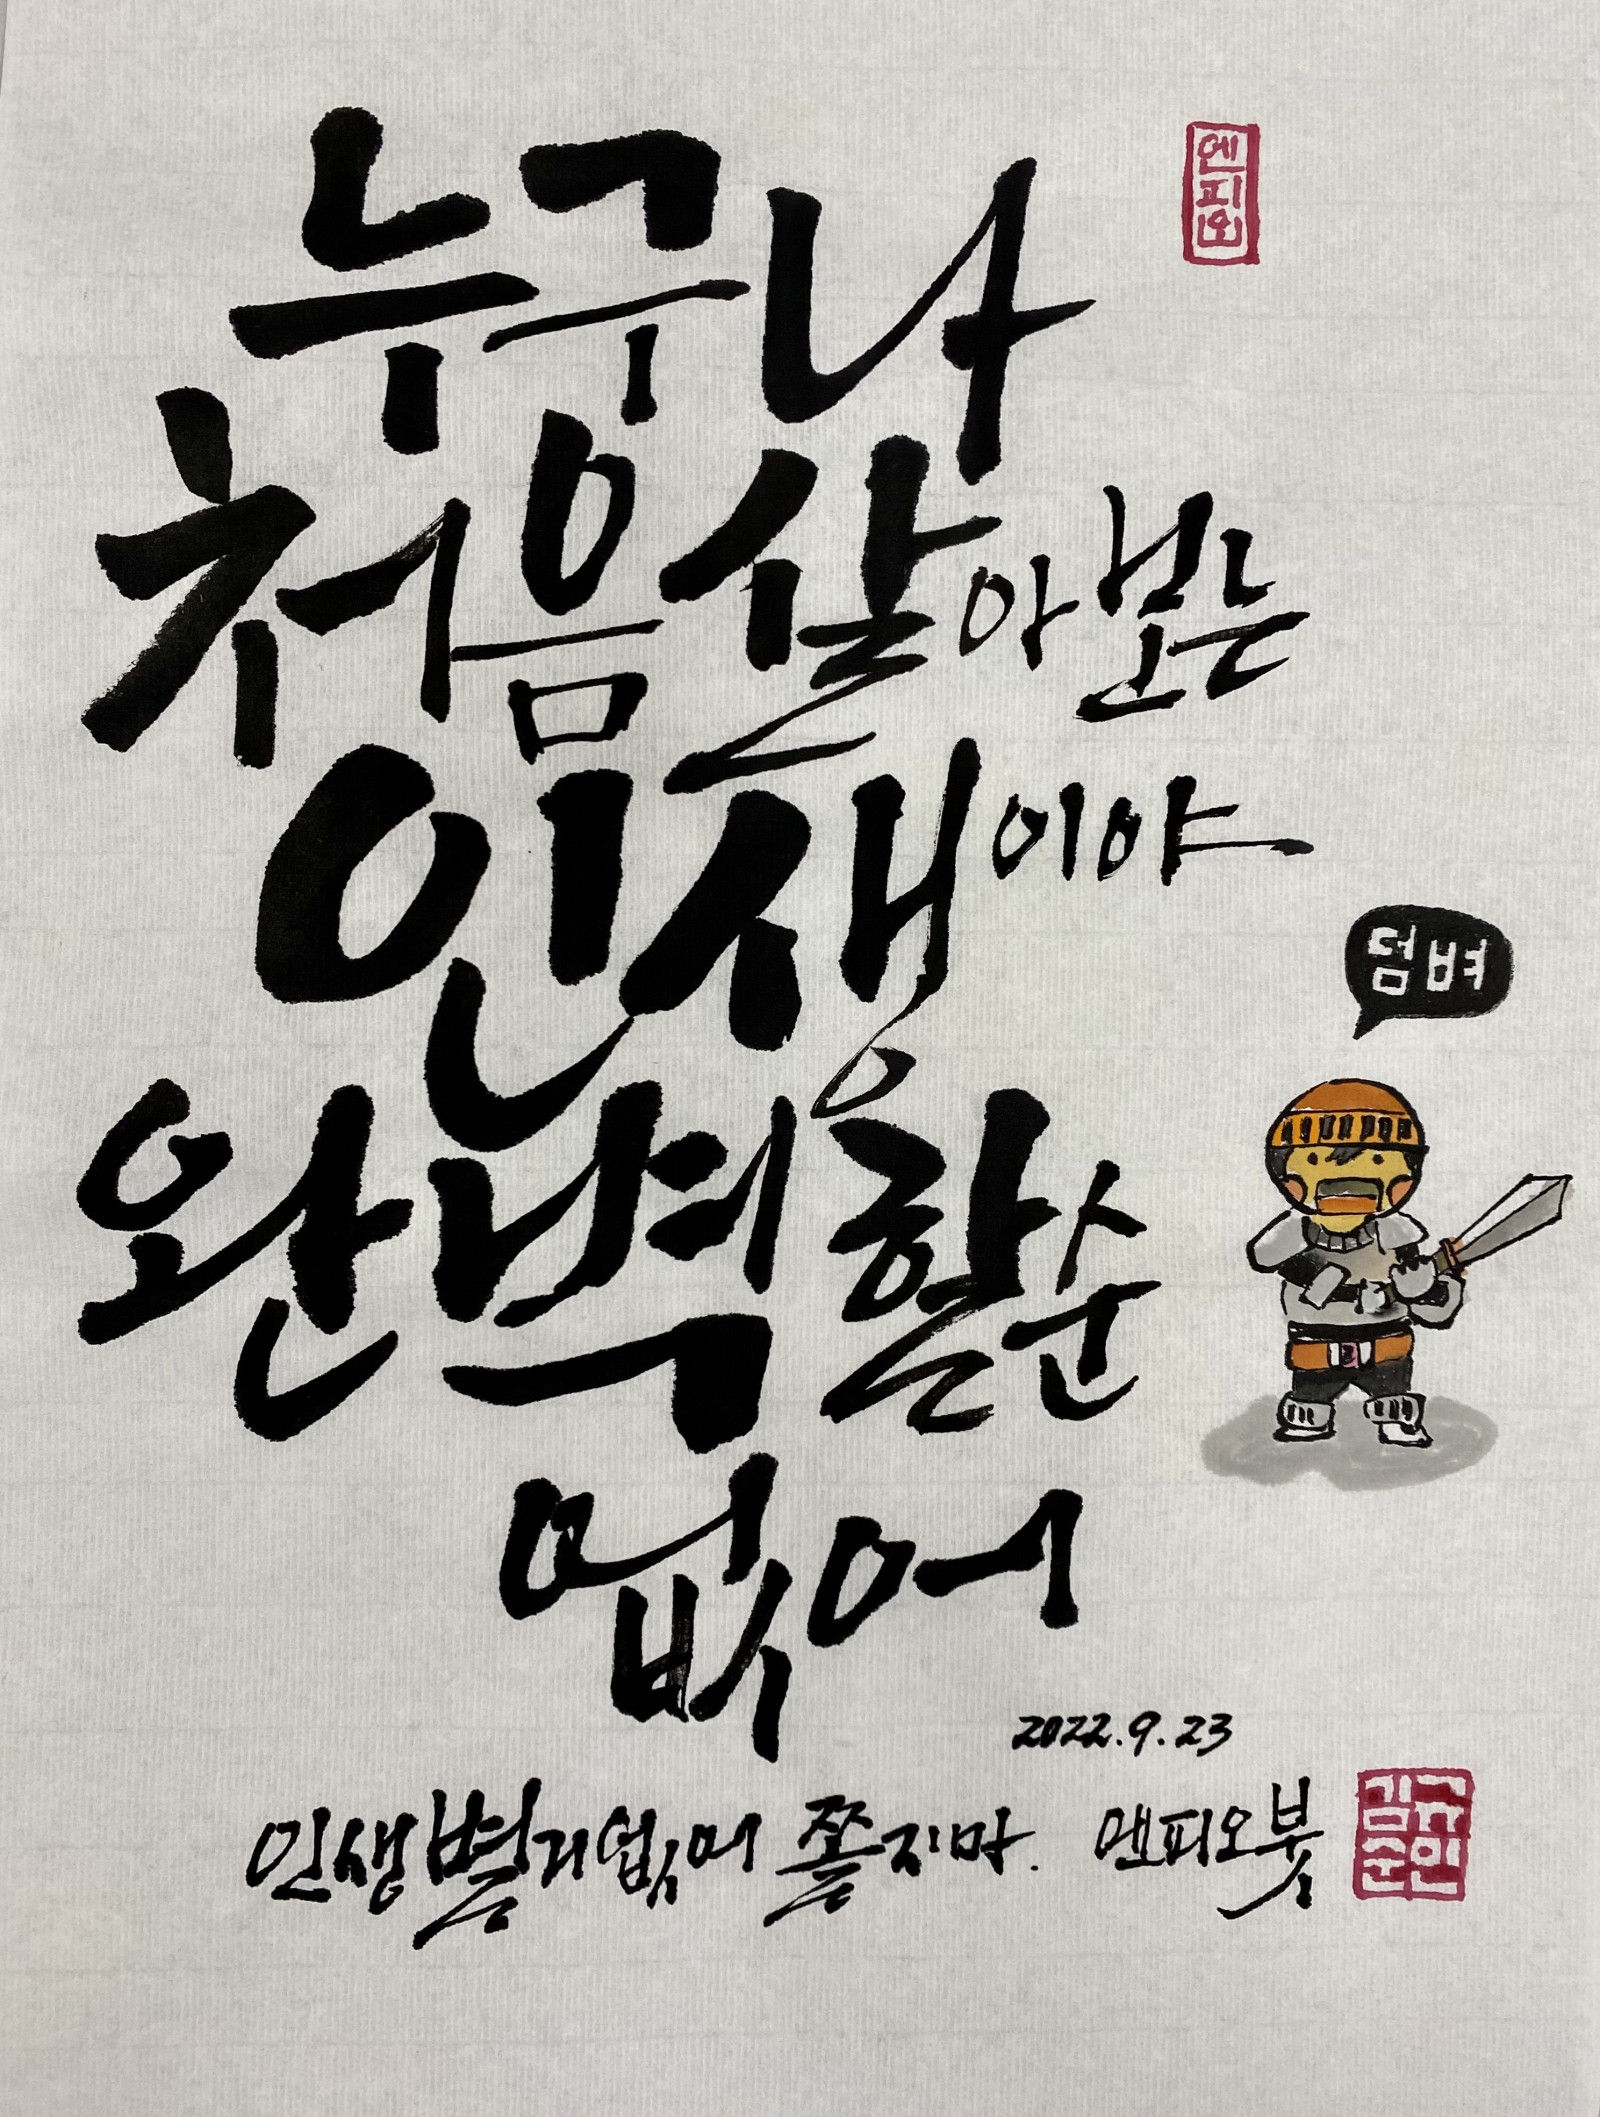 누구나
엔피오
처음 살아보는
인생이야
덤벼
완벽할 순
없어
2022.9.23
인생 별거 없어 쫄지마. 엔피오 붓